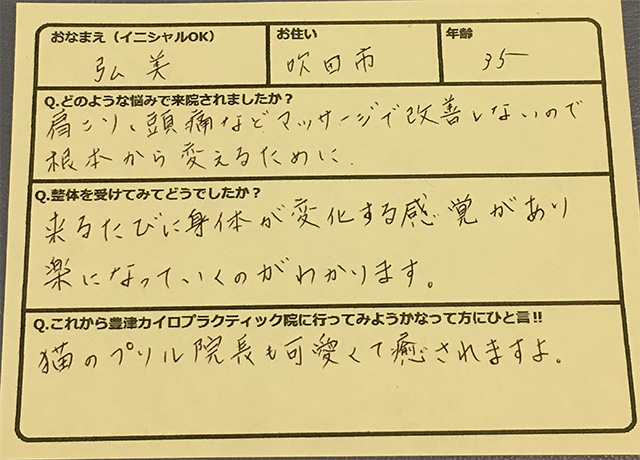 おなまえ（イニシャルOK） お住い 年齢
弘美 吹田市 35
Q.どのような悩みで来院されましたか？
肩こり、頭痛などマッサージで改善しないので
根本から変えるために.
Q.整体を受けてみてどうでしたか？
来るたびに身体が変化する感覚があり
楽になっていくのがわかります。
Q.これから豊津カイロプラクティック院に行ってみようかなって方にひと言!!
猫のプリル院長も可愛くて癒されますよ。